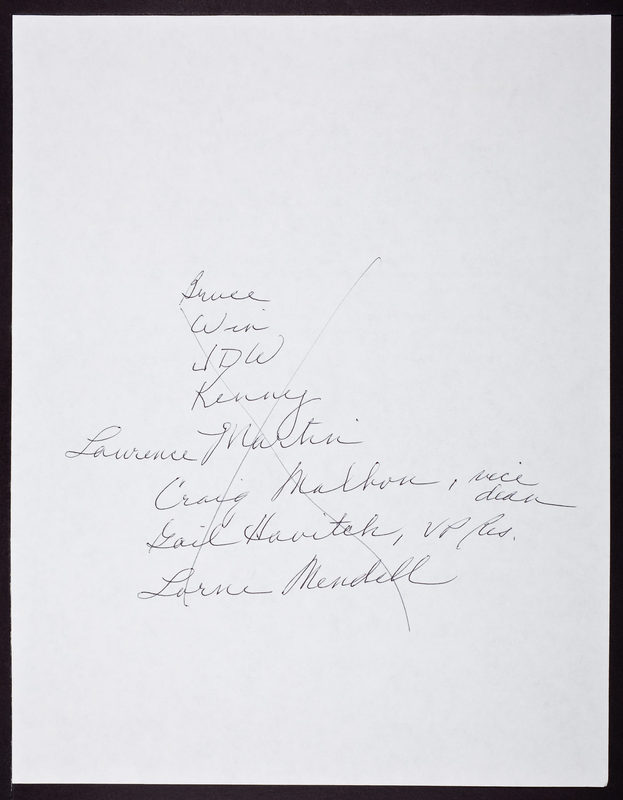 Bruce
Win
JDW
Kenny
Lawrence Martin
Craig Malbon, vice dean
Gail Havitch, VP Res.
Lorne Mendell